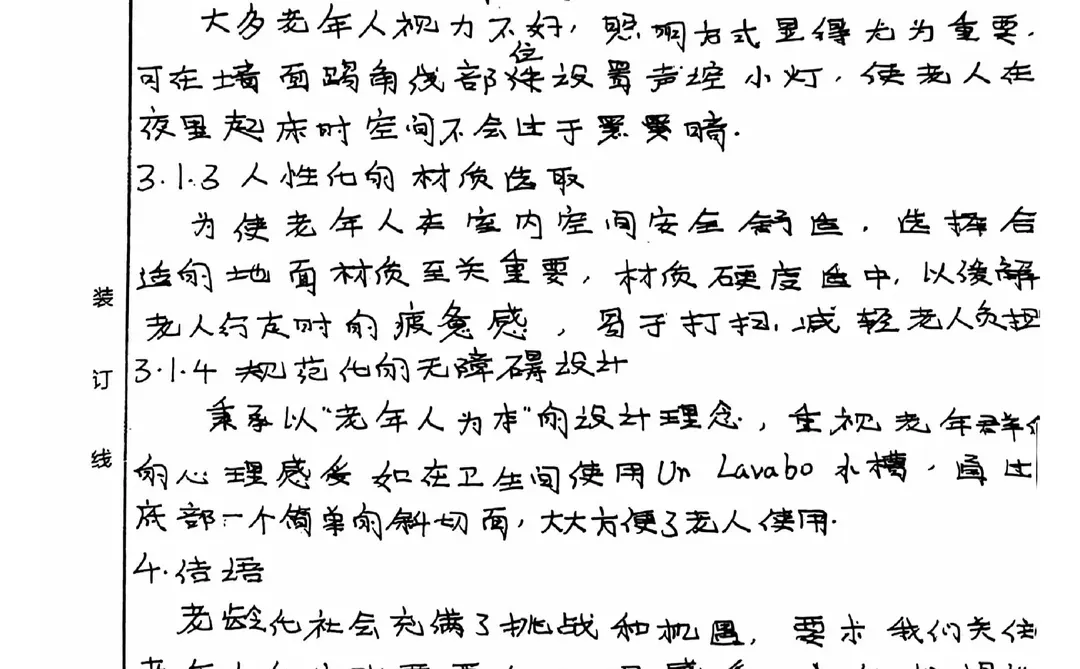 大多老年人视力不好，照明方式显得尤为重要.
位
可在墙面踢角线部设置声控小灯，使老人在
夜里起床时空间不会过于黑暗.
3.1.3 人性化的材质选取
为使老年人在室内空间安全舒适，选择合
适的地面材质至关重要，材质硬度适中，以缓解
老人行走时的疲惫感，易于打扫，减轻老人负担
3.1.4 规范化的无障碍设计
秉承以"老年人为本"的设计理念，重视老年群体
的心理感受 如在卫生间使用Un Lavabo 水槽，通过
底部一个简单的斜切面，大大方便了老人使用.
4.结语
老龄化社会充满了挑战和机遇，要求我们关注
装
订
线